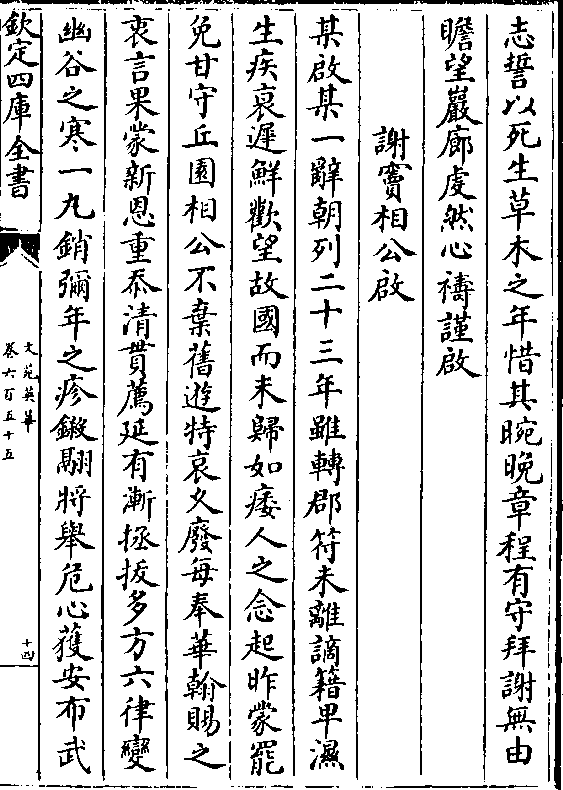 志誓以死生草木之年惜其晼晚章程有守拜謝無由
瞻望巖廊虔然心禱謹啟
謝竇相公啟
某啟某一辭朝列二十三年雖轉郡符未離謫籍卑濕
生疾衰遲鮮歡望故國而未歸如痿人之念起昨蒙罷
免甘守丘園相公不棄舊遊特哀久廢每奉華翰賜之
衷言果蒙新恩重忝清貫薦延有漸拯拔多方六律變
幽谷之寒一丸銷彌年之疹鎩翮將舉危心獲安布武
欽定四庫全書
文苑英華
卷六百五十五
十四